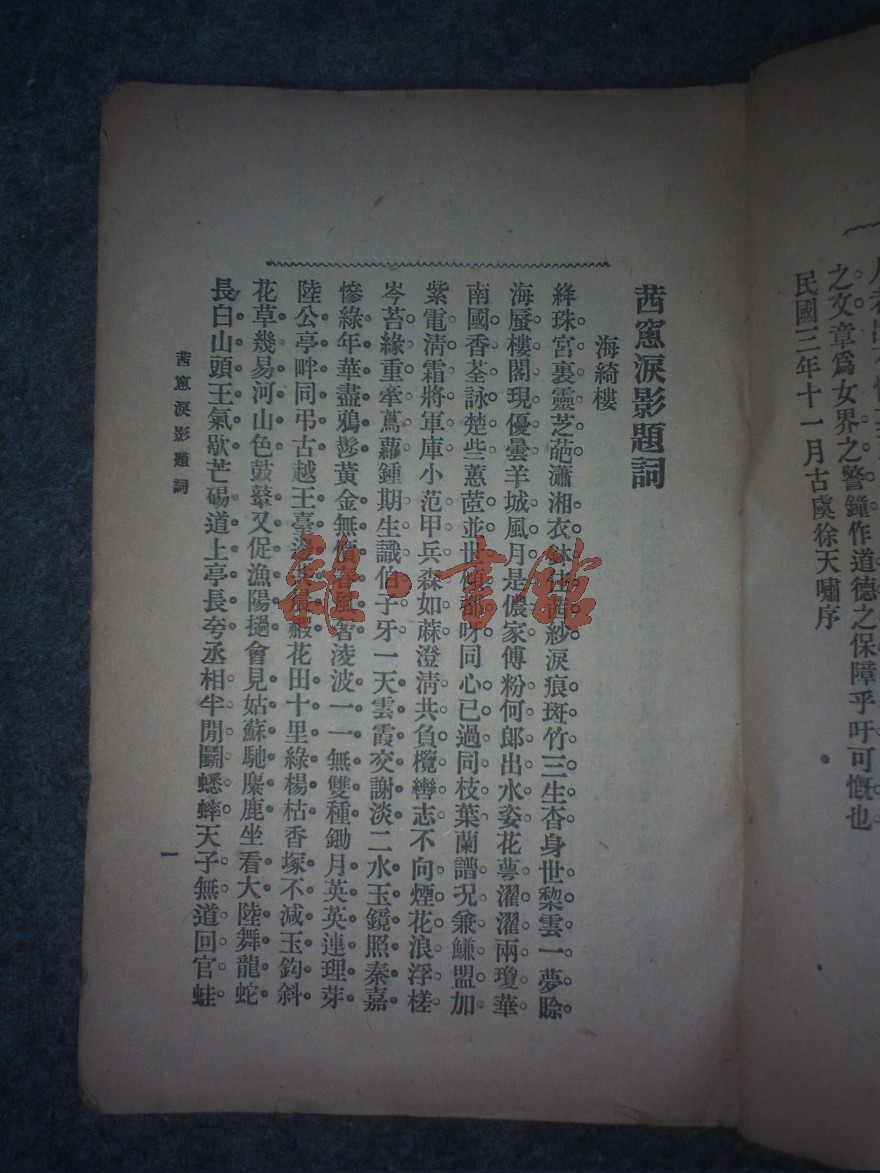 之文章爲女界之警鐘作道德之保障乎吁可慨也
民國三年十一月古虞徐天嘯序
茜窻淚影題詞
海綺樓
絳珠宮裏靈芝葩瀟湘衣鉢茜紗淚痕斑竹三生杳身世棃雲一夢賒
海蜃樓閣現優曇羊城風月是儂家傅粉何郎出水姿花蕚濯濯兩瓊華
南國香荃詠楚些蕙茝並世呀同心已過同枝葉蘭譜況兼鰜盟加
紫電淸霜將軍庫小范甲兵森如蔴澄淸共負攬轡志不向煙花浪浮槎
岑苔緣重牽蔦蘿鍾期生識伯子牙一天雲霞交謝淡二水玉鏡照秦嘉
慘綠年華盡鴉鬖黃金無價春風奢淩波一一無雙種鋤月英英連理芽
陸公亭畔同弔古越王臺花田十里綠楊枯香塚不減玉鈎斜
花草幾易河山色鼓鼙又促漁陽撾會見姑蘇馳麋鹿坐看大陸舞龍蛇
長白山頭王氣歇芒碭道上亭長夸丞相半閒鬭蟋蟀天子無道回官蛙
茜窻淚影題詞
一
雜·書館